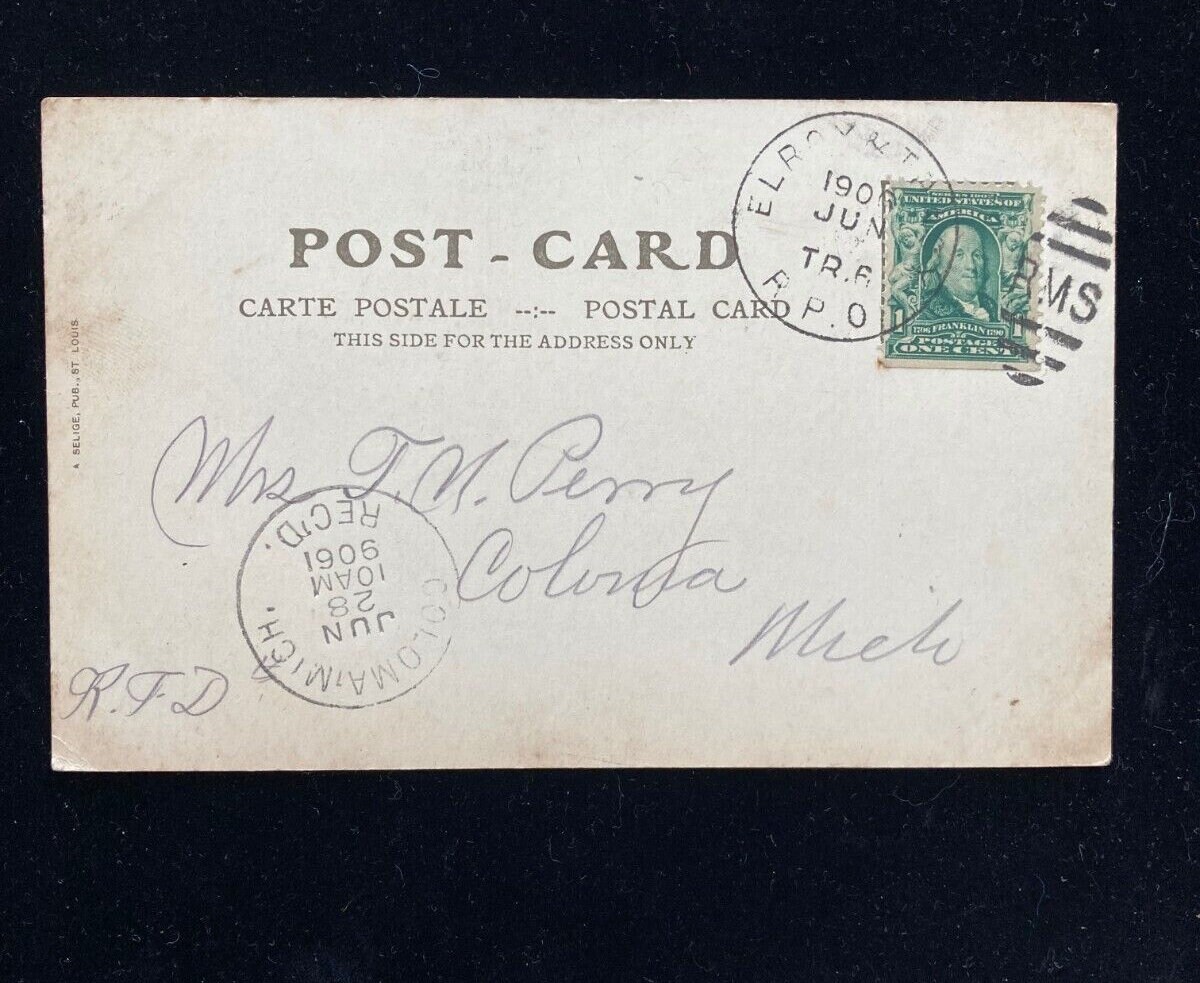 POST - CARD
CARTE POSTALE --:-- POSTAL CARD
THIS SIDE FOR THE ADDRESS ONLY
A SELIGE, PUB., ST. LOUIS
ELROY & T
1906
JUN
TR.6
R.P.O
RMS
SERIES 1902
UNITED STATES OF
AMERICA
1706 FRANKLIN 1790
1 1
POSTAGE
ONE CENT
Mrs T. N. Perry
Coloma
Mich
R.F.D
COLOMA, MICH.
JUN
28
10AM
1906
REC'D.